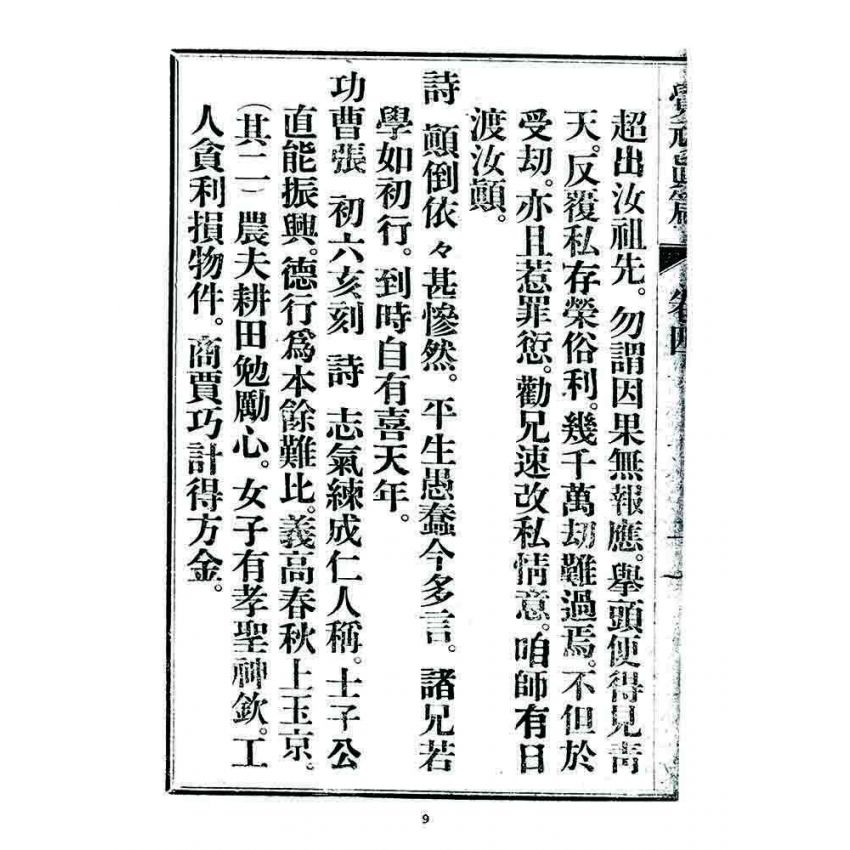 超出汝祖先。勿謂因果無報應。舉頭便得見靑
天。反覆私存榮俗利。幾千萬劫難過焉。不但於
受劫。亦且惹罪愆。勸兄速改私情意。咱師有日
渡汝顚。
詩 顚倒依々甚慘然。平生愚蠢今多言。諸兄若
學如初行。到時自有喜天年。
功曹張 初六亥刻 詩 志氣練成仁人稱。士子公
直能振興。德行爲本餘難比。義高春秋上玉京。
(其二) 農夫耕田勉勵心。女子有孝聖神欽。工
人貪利損物件。商賈巧計得方金。
卷四
9